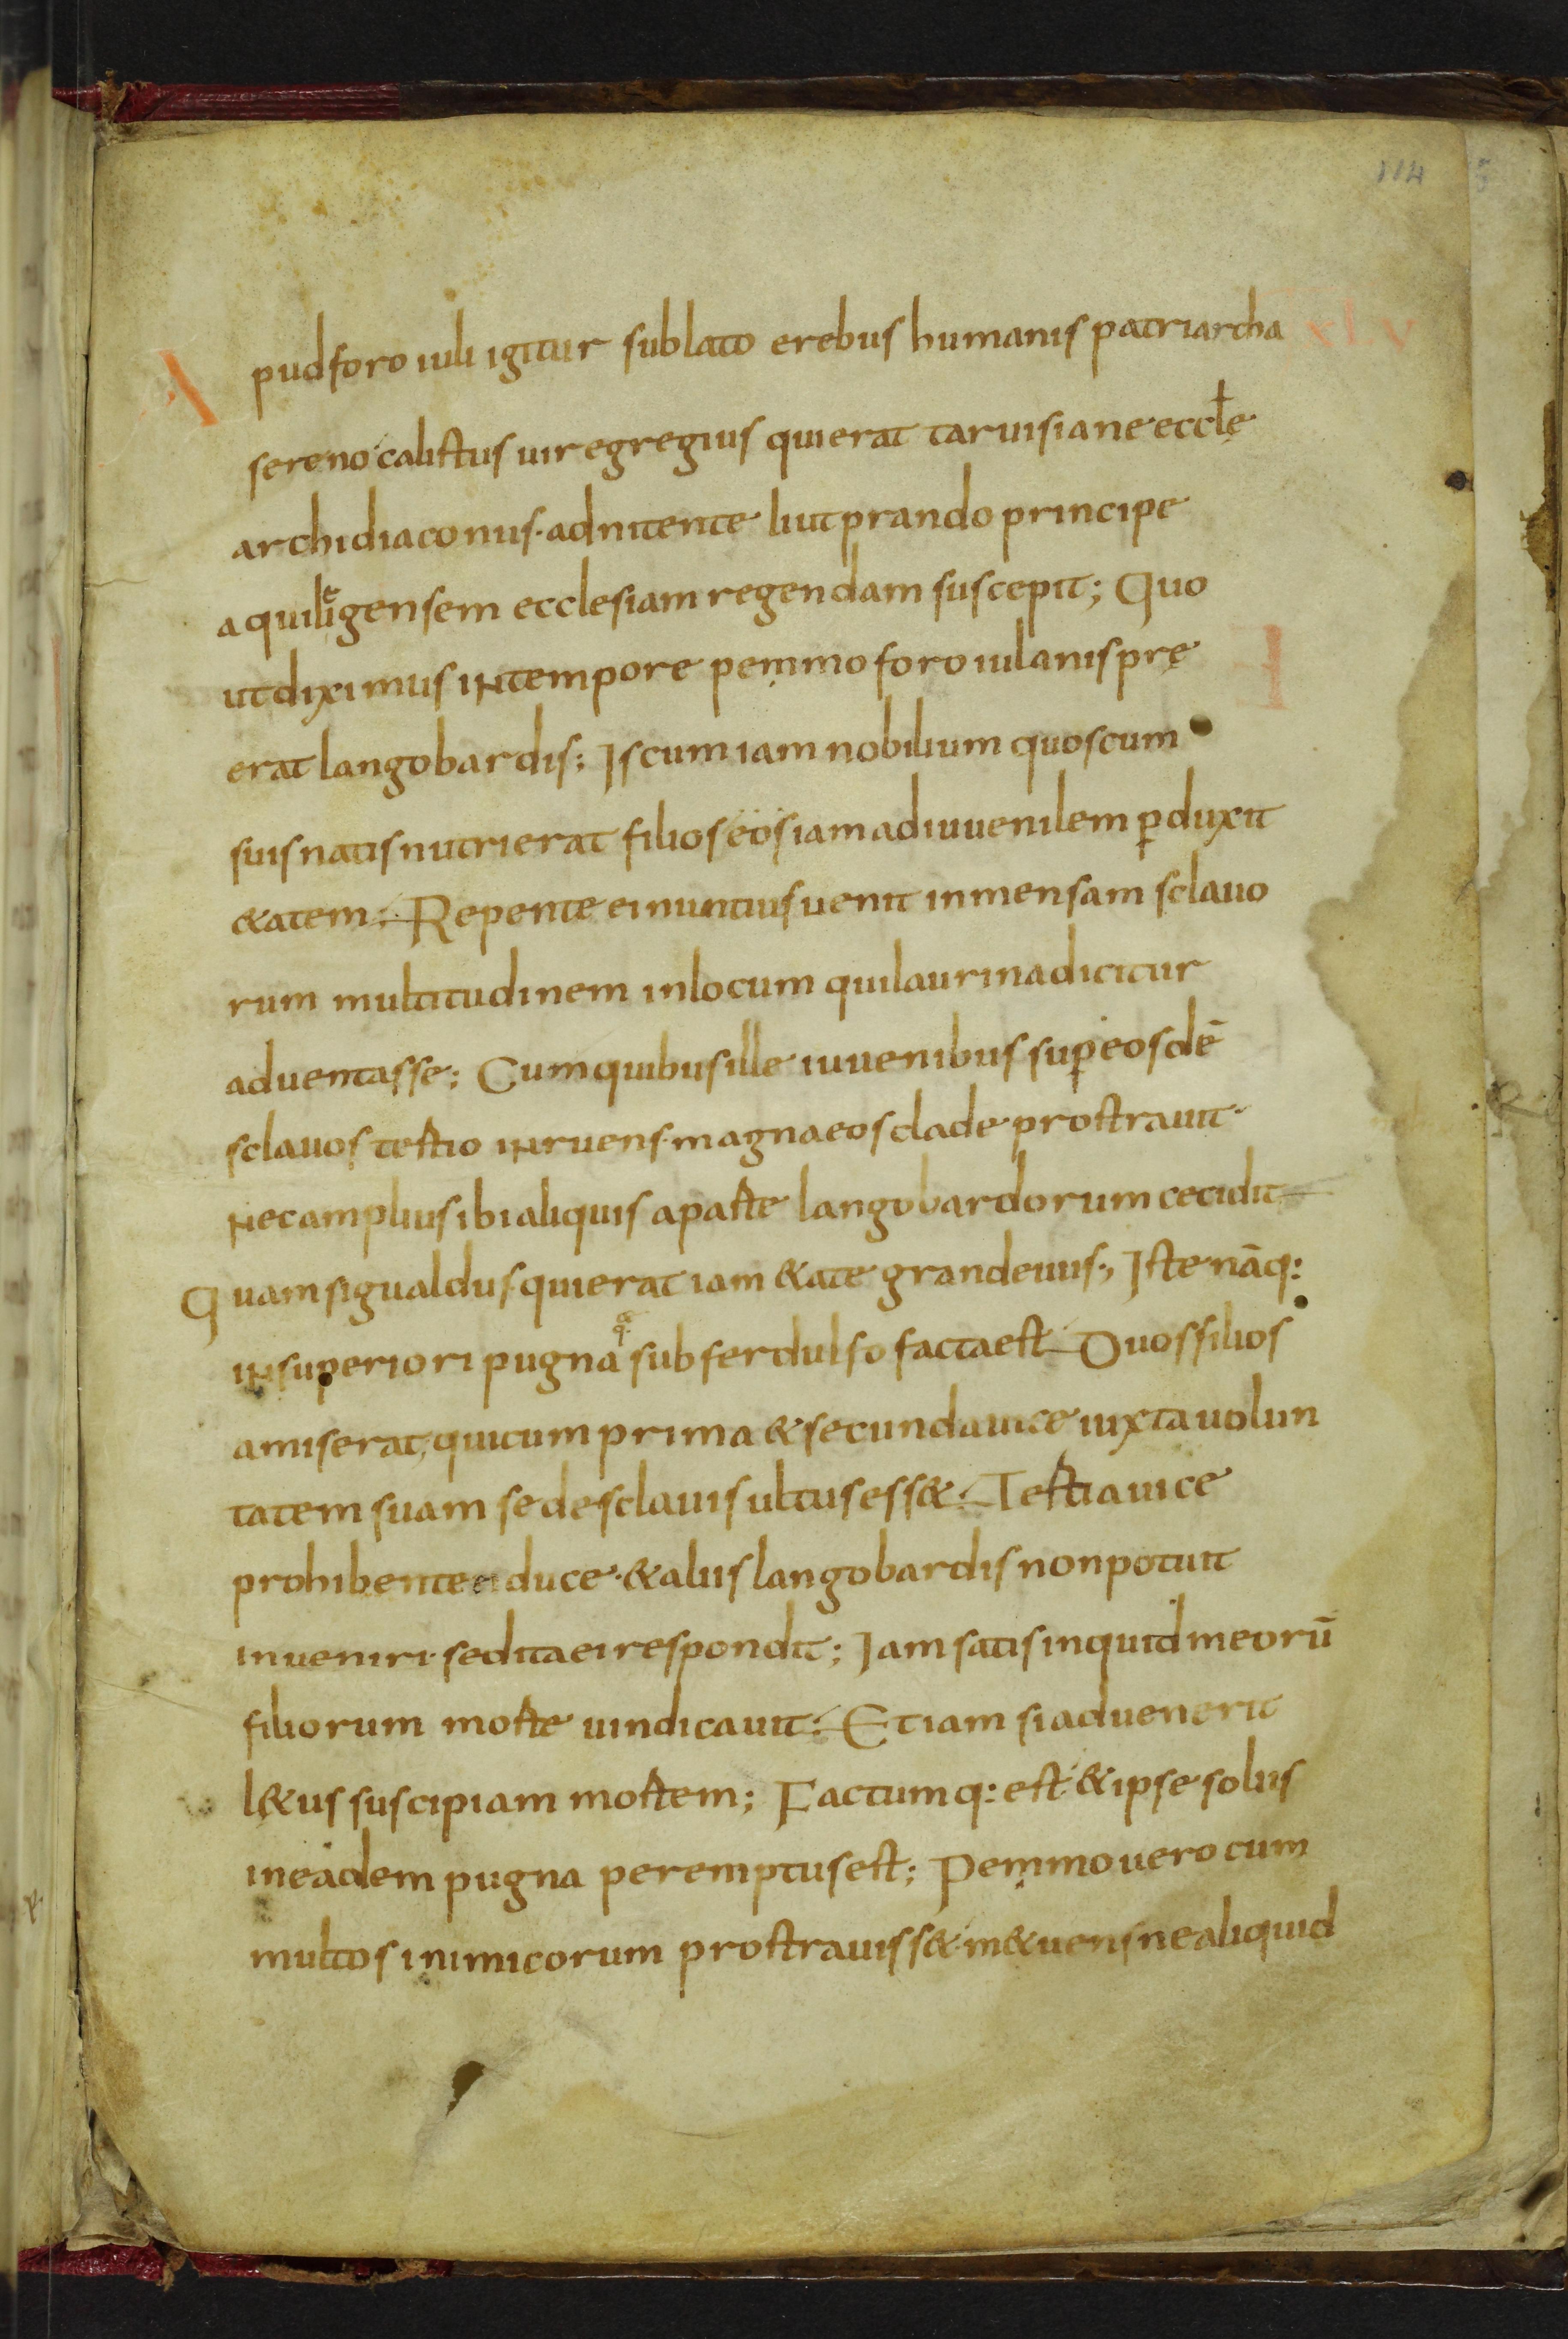 114
Apud foro iuli igitur sublato erebus humanis patriarcha
sereno calistus uir egregius qui erat taruisiane eccłe
archidiaconus · adnitente liutprando principe
aquiligensem ecclesiam regendam suscepit; Quo
ut diximus in tempore pemmo foro iulanis prę
erat langobardis; Is cum iam nobilium quos cum
suis natis nutrierat filios eos iam ad iuuenilem ꝑduxit
&atem; Repente ei nuntius uenit inmensam sclauo
rum multitudinem in locum qui laurina dicitur
aduentasse; Cum quibus ille iuuenibus super eosdē
sclauos tertio inruens · magna eos clade prostrauit ·
nec amplius ibi aliquis a parte langobardorum cecidit
Quam sigualdus · qui erat iam &ate grandeuus; Iste nāq:
in superiori pugna q̄ sub ferdulfo facta est Duos filios
amiserat, qui cum prima & secunda uice iuxta uolun
tatem suam se de sclauis ultus ess&; Tertia uice
prohibente duce · & aliis langobardis non potuit
inueniri · sed ita ei respondit; Iam satis inquid meorū
filiorum morte uindicauit; Etiam si aduenerit
l&us suscipiam mortem; Factumq: est · & ipse solus
in eadem pugna peremptus est; Pemmo uero cum
multos inimicorum prostrauiss& · m&uens ne aliquid